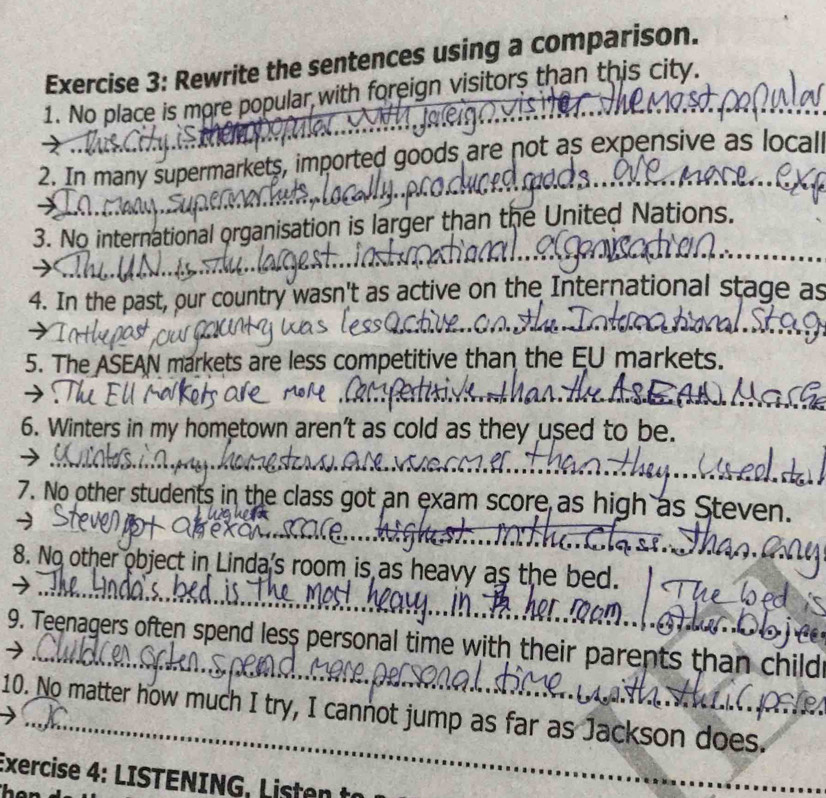 Exercise 3: Rewrite the sentences using a comparison.
1. No place is more popular with foreign visitors than this city.
→ This City is popular with foreign visiter the most popular
2. In many supermarkets, imported goods are not as expensive as locall
→ In many supermarkets, locally produced goods are more exp
3. No international organisation is larger than the United Nations.
→ The UN is the largest international organisation
4. In the past, our country wasn't as active on the International stage as
→ In the past, our country was less active on the International Stag
5. The ASEAN markets are less competitive than the EU markets.
→ The EU markets are more competitive than the ASEAN
6. Winters in my hometown aren't as cold as they used to be.
→ Winters in my hometown are warmer than they used to
7. No other students in the class got an exam score as high as Steven.
higher
→ Steven got a exam score highest in the class than any
8. No other object in Linda's room is as heavy as the bed.
→ The Linda's bed is the most heavy in her room | The bed is
other objec
9. Teenagers often spend less personal time with their parents than childr
→ Children often spend more personal time with their paren
10. No matter how much I try, I cannot jump as far as Jackson does.
→
Exercise 4: LISTENING. Listen to